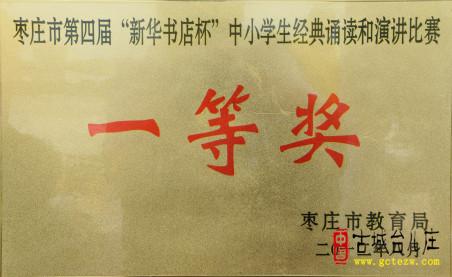 枣庄市第四届“新华书店杯”中小学生经典诵读和演讲比赛
一等奖
枣庄市教育局
二〇一
月
古城台儿庄
www.gctezw.com